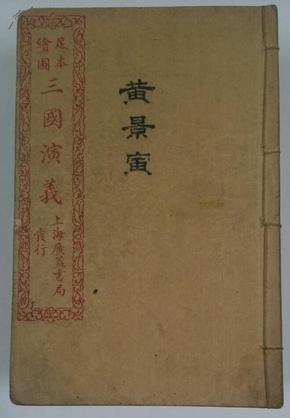 足本
繪圖
三國演義
上海廣益書局
發行
黃景寅